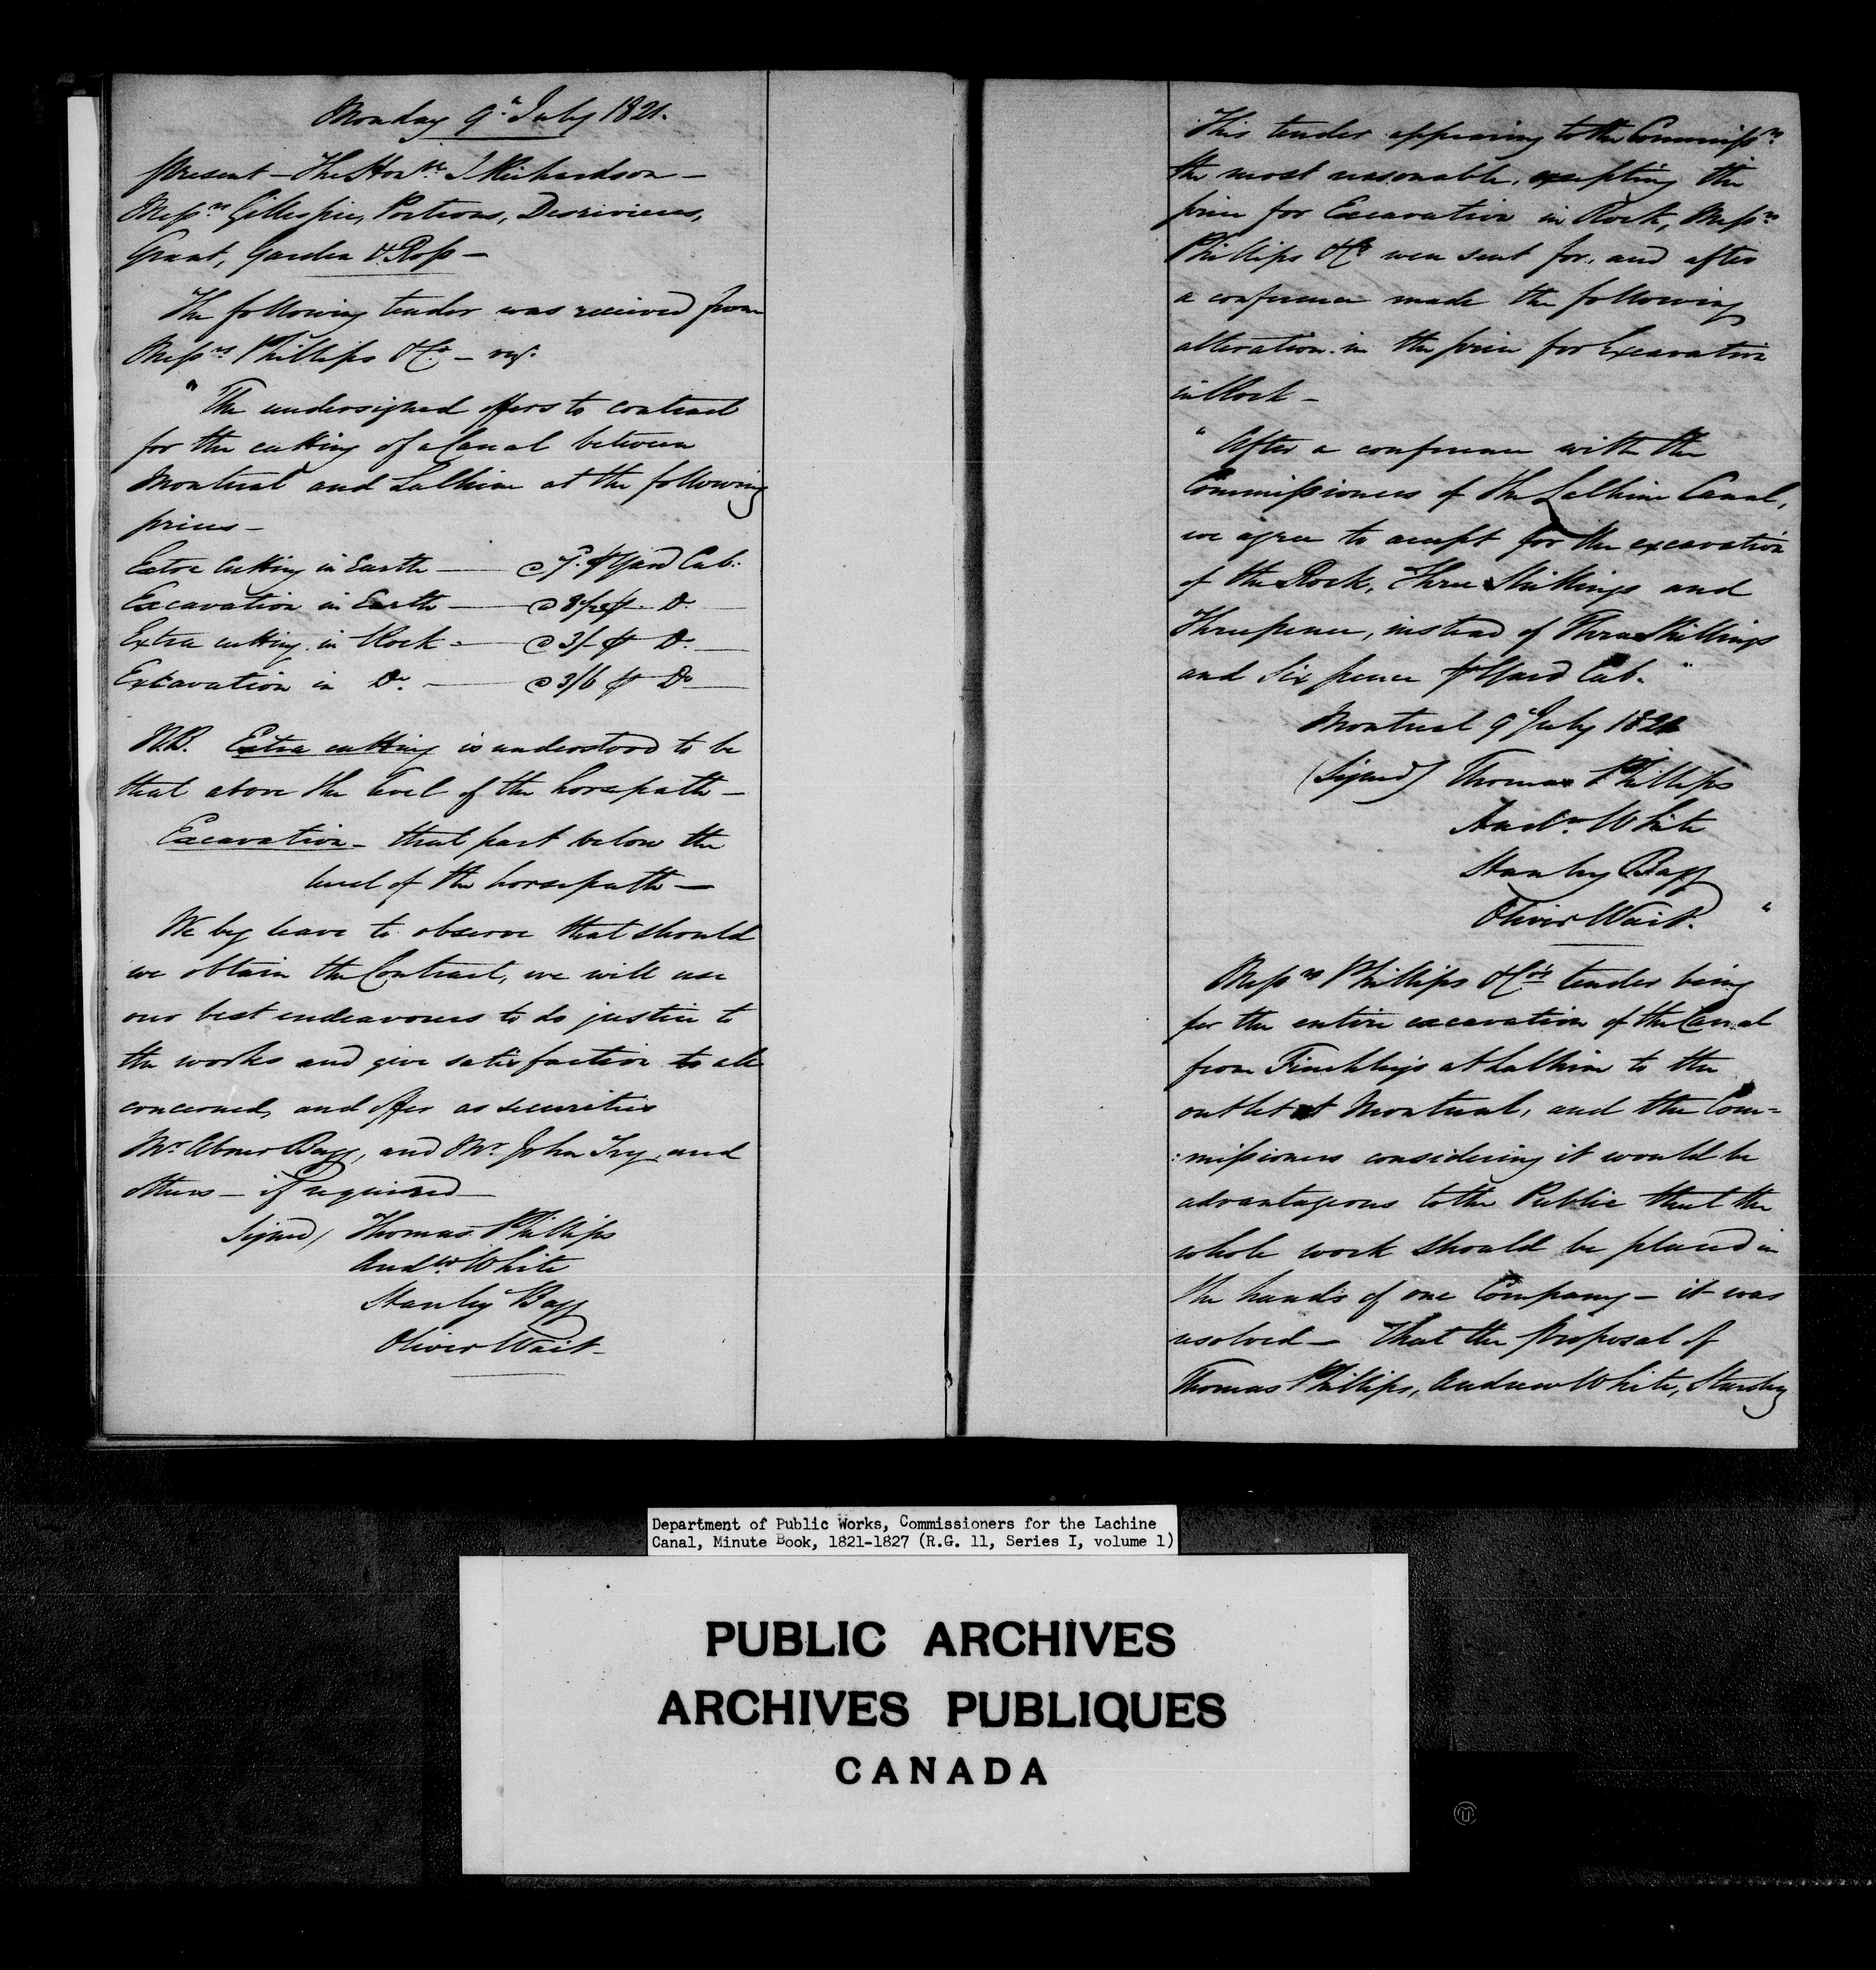 Monday 9th July 1821.
Present – The Honble J Richardson –
Messrs Gillespie, Porteous, Desrivieres,
Grant, Garden & Ross –
The following tender was received from
Messrs Phillips & Co – viz.
" The undersigned offers to contract
for the cutting of a Canal between
Montreal and Lachine at the following
prices –
Extra Cutting in Earth – @ 7d. ⅌ Yard Cub.
Excavation in Earth – @ ⅌ Do.
Extra cutting in Rock – @ 3/- ⅌ Do.
Excavation in Do. – @ 3/6 ⅌ Do
N.B. Extra cutting is understood to be
that above the level of the horsepath –
Excavation – that part below the
level of the horsepath –
We beg leave to observe that should
we obtain the Contract, we will use
our best endeavours to do justice to
the works and give satisfaction to all
concerned, and offer as securities
Mr Abner Bagg, and Mr John Try, and
others – if required –
Signed / Thomas Phillips
Andw White
Stanley Bagg
Oliver Wait –
This tender appearing to the Commissrs
the most reasonable, excepting the
price for Excavation in Rock, Messrs
Phillips & Co were sent for, and after
a conference made the following
alteration in the price for Excavation
in Rock –
" After a conference with the
Commissioners of the Lachine Canal,
we agree to accept for the excavation
of the Rock, Three Shillings and
Threepence, instead of Three Shillings
and Six pence ⅌ Yard Cub. "
Montreal 9 July 1821
(Signed) Thomas Phillips
Andw White
Stanley Bagg
Oliver Wait. "
Messrs Phillips & Co's tender being
for the entire excavation of the Canal
from Finchley's at Lachine to the
outlet at Montreal, and the Com=
:missioners considering it would be
advantageous to the Public that the
whole work should be placed in
the hands of one Company – it was
resolved – That the proposal of
Thomas Phillips, Andrew White, Stanley
Department of Public Works, Commissioners for the Lachine
Canal, Minute Book, 1821-1827 (R.G. 11, Series I, volume 1)
PUBLIC ARCHIVES
ARCHIVES PUBLIQUES
CANADA